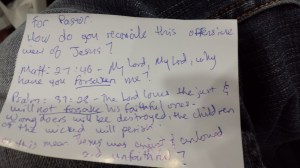 For Pastor
How do you reconcile this offensive
view of Jesus?
Matt: 27:46 - My Lord, My Lord, why
have you forsaken me?
Psalm: 37:28 - The Lord loves the just &
will not forsake his faithful ones.
Wrongdoers will be destroyed, the children
of the wicked will perish.
this mean Jesus was
unfaithful?